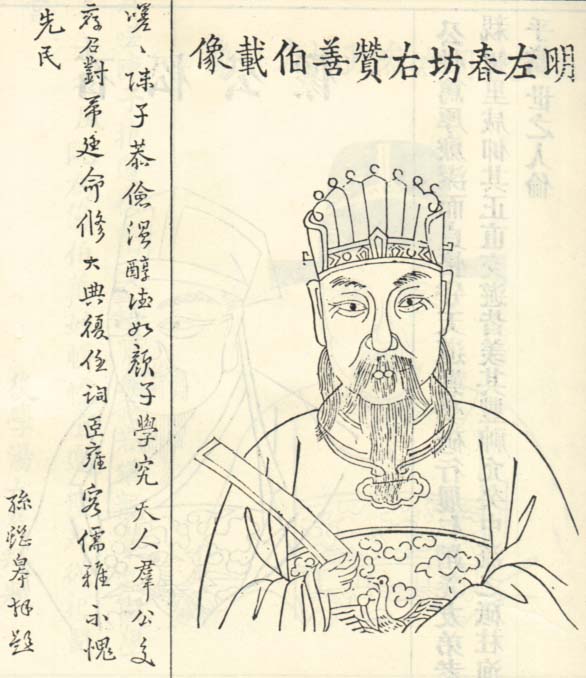 明左春坊右贊善伯載像
嗟〻陳子恭儉温醇德如顏子學究天人羣公交
薦召對帝廷命修大典復任詞臣雍容儒雅不愧
先民
孫繼皋拜題